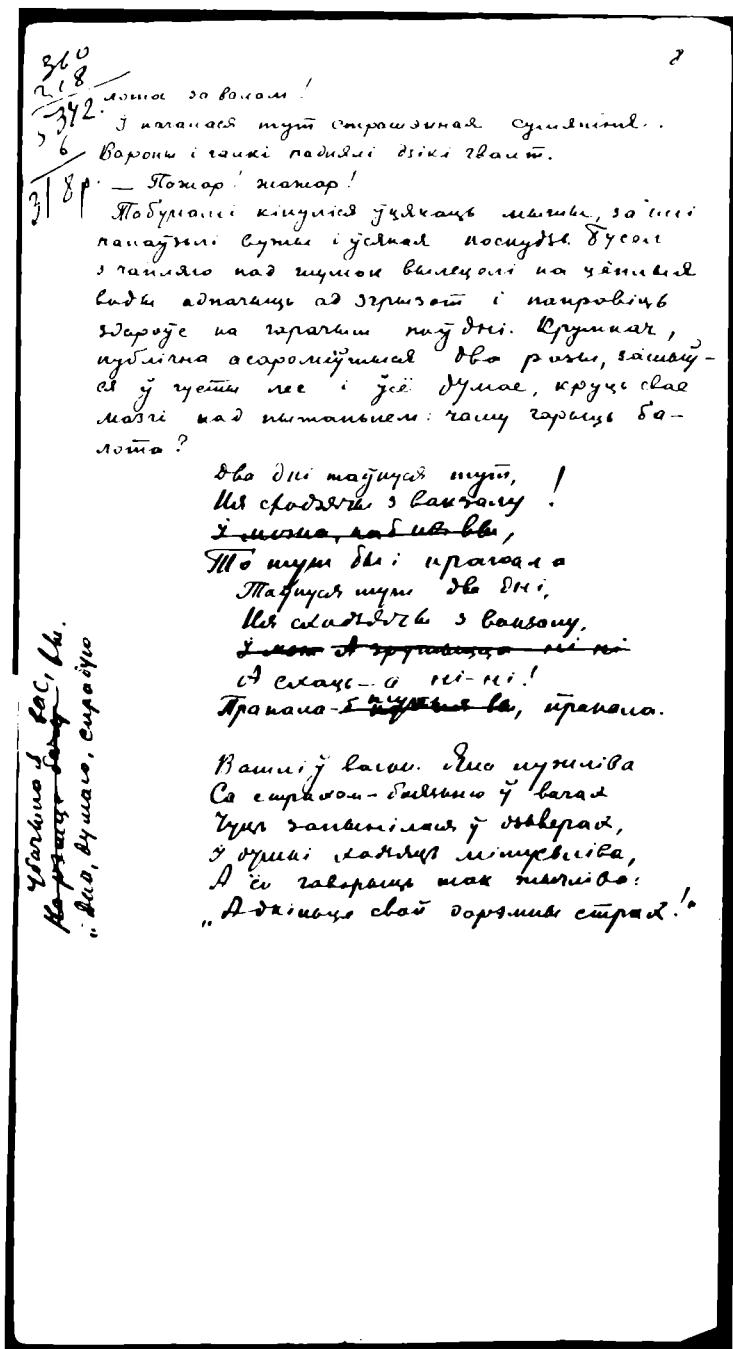 8
360
218
342.
6
318 р.
лота за валам!
І пачалася тут страшэнная сумяціня..
Вароны і галкі паднялі дзікі гвалт.
— Пажар! пажар!
Табунамі кінуліся ўцякаць мышы, за імі
папаўзлі вужы і ўсякая поскудзь. Бусел
з чапляю пад шумок вылецелі на цёплыя
воды адпачыць ад згрызот і паправіць
здароўе на гарачым поўдні. Крумкач,
публічна асароміўшыся два разы, зашыў-
ся ў густы лес і ўсё думае, круціць свае
мозгі над пытаньнем: чаму гарыць ба-
лота?
Два дні таўчуся тут,
Ня сходзячы з вакзалу!
То тут бы і прапала
Таўчуся тут два дні,
Ня сходзячы з вакзалу,
А спаць — а ні-ні!
Прапала, прапала.
Вашлі ў вагон. Яна пужліва
Са страхам-боязьню ў вачах
Чуць запынілася ў дзьверах,
А ён гаворыць так жычліва:
„Адкіньце свой дарэмны страх!"
вас, вы.
думаю, спрабую